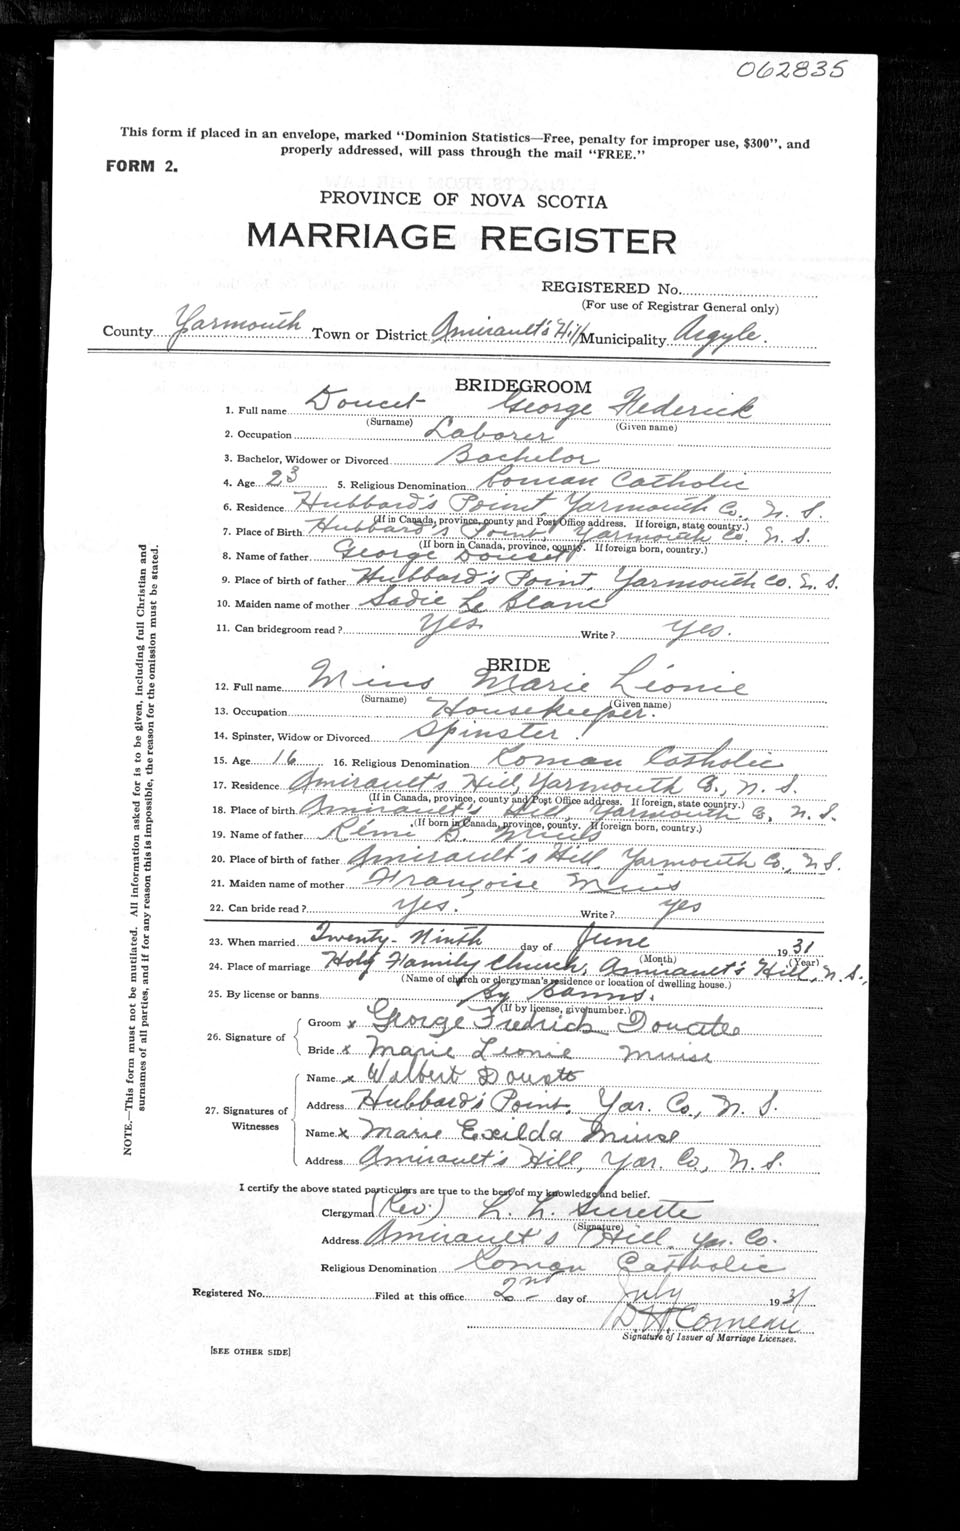 062835
This form if placed in an envelope, marked "Dominion Statistics—Free, penalty for improper use, $300", and
properly addressed, will pass through the mail "FREE."
FORM 2.
PROVINCE OF NOVA SCOTIA
MARRIAGE REGISTER
REGISTERED No.
(For use of Registrar General only)
County Yarmouth Town or District Amirault's Hill Municipality Argyle.
BRIDEGROOM
1. Full name Doucet George Frederick
(Surname) (Given name)
2. Occupation Laborer
3. Bachelor, Widower or Divorced Bachelor
4. Age 23 5. Religious Denomination Roman Catholic
6. Residence Hubbard's Point, Yarmouth Co., N. S.
(If in Canada, province, county and Post Office address. If foreign, state country.)
7. Place of Birth Hubbard's Point, Yarmouth Co. N. S.
(If born in Canada, province, county. If foreign born, country.)
8. Name of father George Doucet
9. Place of birth of father Hubbard's Point, Yarmouth Co. N. S.
10. Maiden name of mother Sadie Le Blanc
11. Can bridegroom read? Yes Write? Yes.
BRIDE
12. Full name Mius Marie Léonie
(Surname) (Given name)
13. Occupation Housekeeper.
14. Spinster, Widow or Divorced Spinster.
15. Age 16 16. Religious Denomination Roman Catholic
17. Residence Amirault's Hill, Yarmouth Co., N. S.
(If in Canada, province, county and Post Office address. If foreign, state country.)
18. Place of birth Amirault's Hill, Yarmouth Co, N. S.
(If born in Canada, province, county. If foreign born, country.)
19. Name of father Rémi B. Mius
20. Place of birth of father Amirault's Hill Yarmouth Co., N. S.
21. Maiden name of mother Françoise Mius
22. Can bride read? Yes. Write? yes
23. When married Twenty-Ninth day of June 1931
(Month) (Year)
24. Place of marriage Holy Family Church, Amirault's Hill, N. S.,
(Name of church or clergyman's residence or location of dwelling house.)
25. By license or banns By Banns.
(If by license, give number.)
26. Signature of
Groom x George Fredrick Doucette
Bride x Marie Leonie Muise
27. Signatures of Witnesses
Name x Walbert Doucette
Address Hubbard's Point, Yar. Co., N. S.
Name x Marie Exilda Muise
Address Amirault's Hill, Yar. Co., N. S.
I certify the above stated particulars are true to the best of my knowledge and belief.
Clergyman (Rev.) L. L. Surette
(Signature)
Address Amirault's Hill, Yar. Co.
Religious Denomination Roman Catholic
Registered No. Filed at this office 2nd day of July 1931
D H Comeau
Signature of Issuer of Marriage Licenses.
[SEE OTHER SIDE]
NOTE.—This form must not be mutilated. All information asked for is to be given, including full Christian and
surnames of all parties, and if for any reason this is impossible, the reason for the omission must be stated.